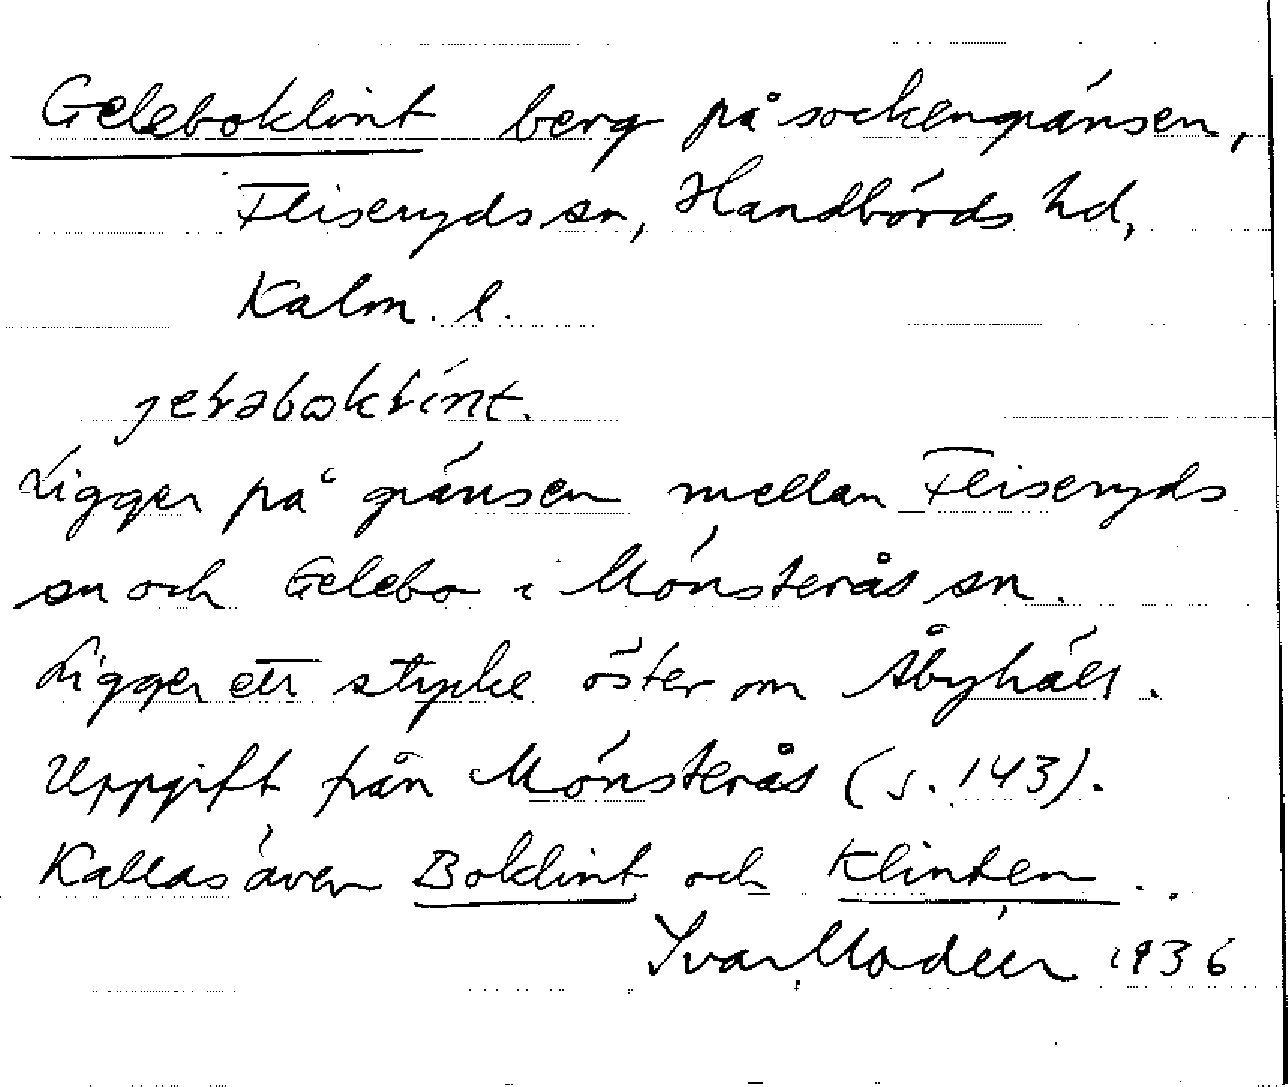 Geleboklint berg på sockengränsen,
Fliseryds sn, Handbörds hd,
Kalm. l.
Ligger på gränsen mellan Fliseryds
sn och Gelebo i Mönsterås sn.
Ligger ett stycke öster om Åbyhält.
Uppgift från Mönsterås (s. 143).
Kallas även Boklint och Klinten.
Ivar Modéer 1936